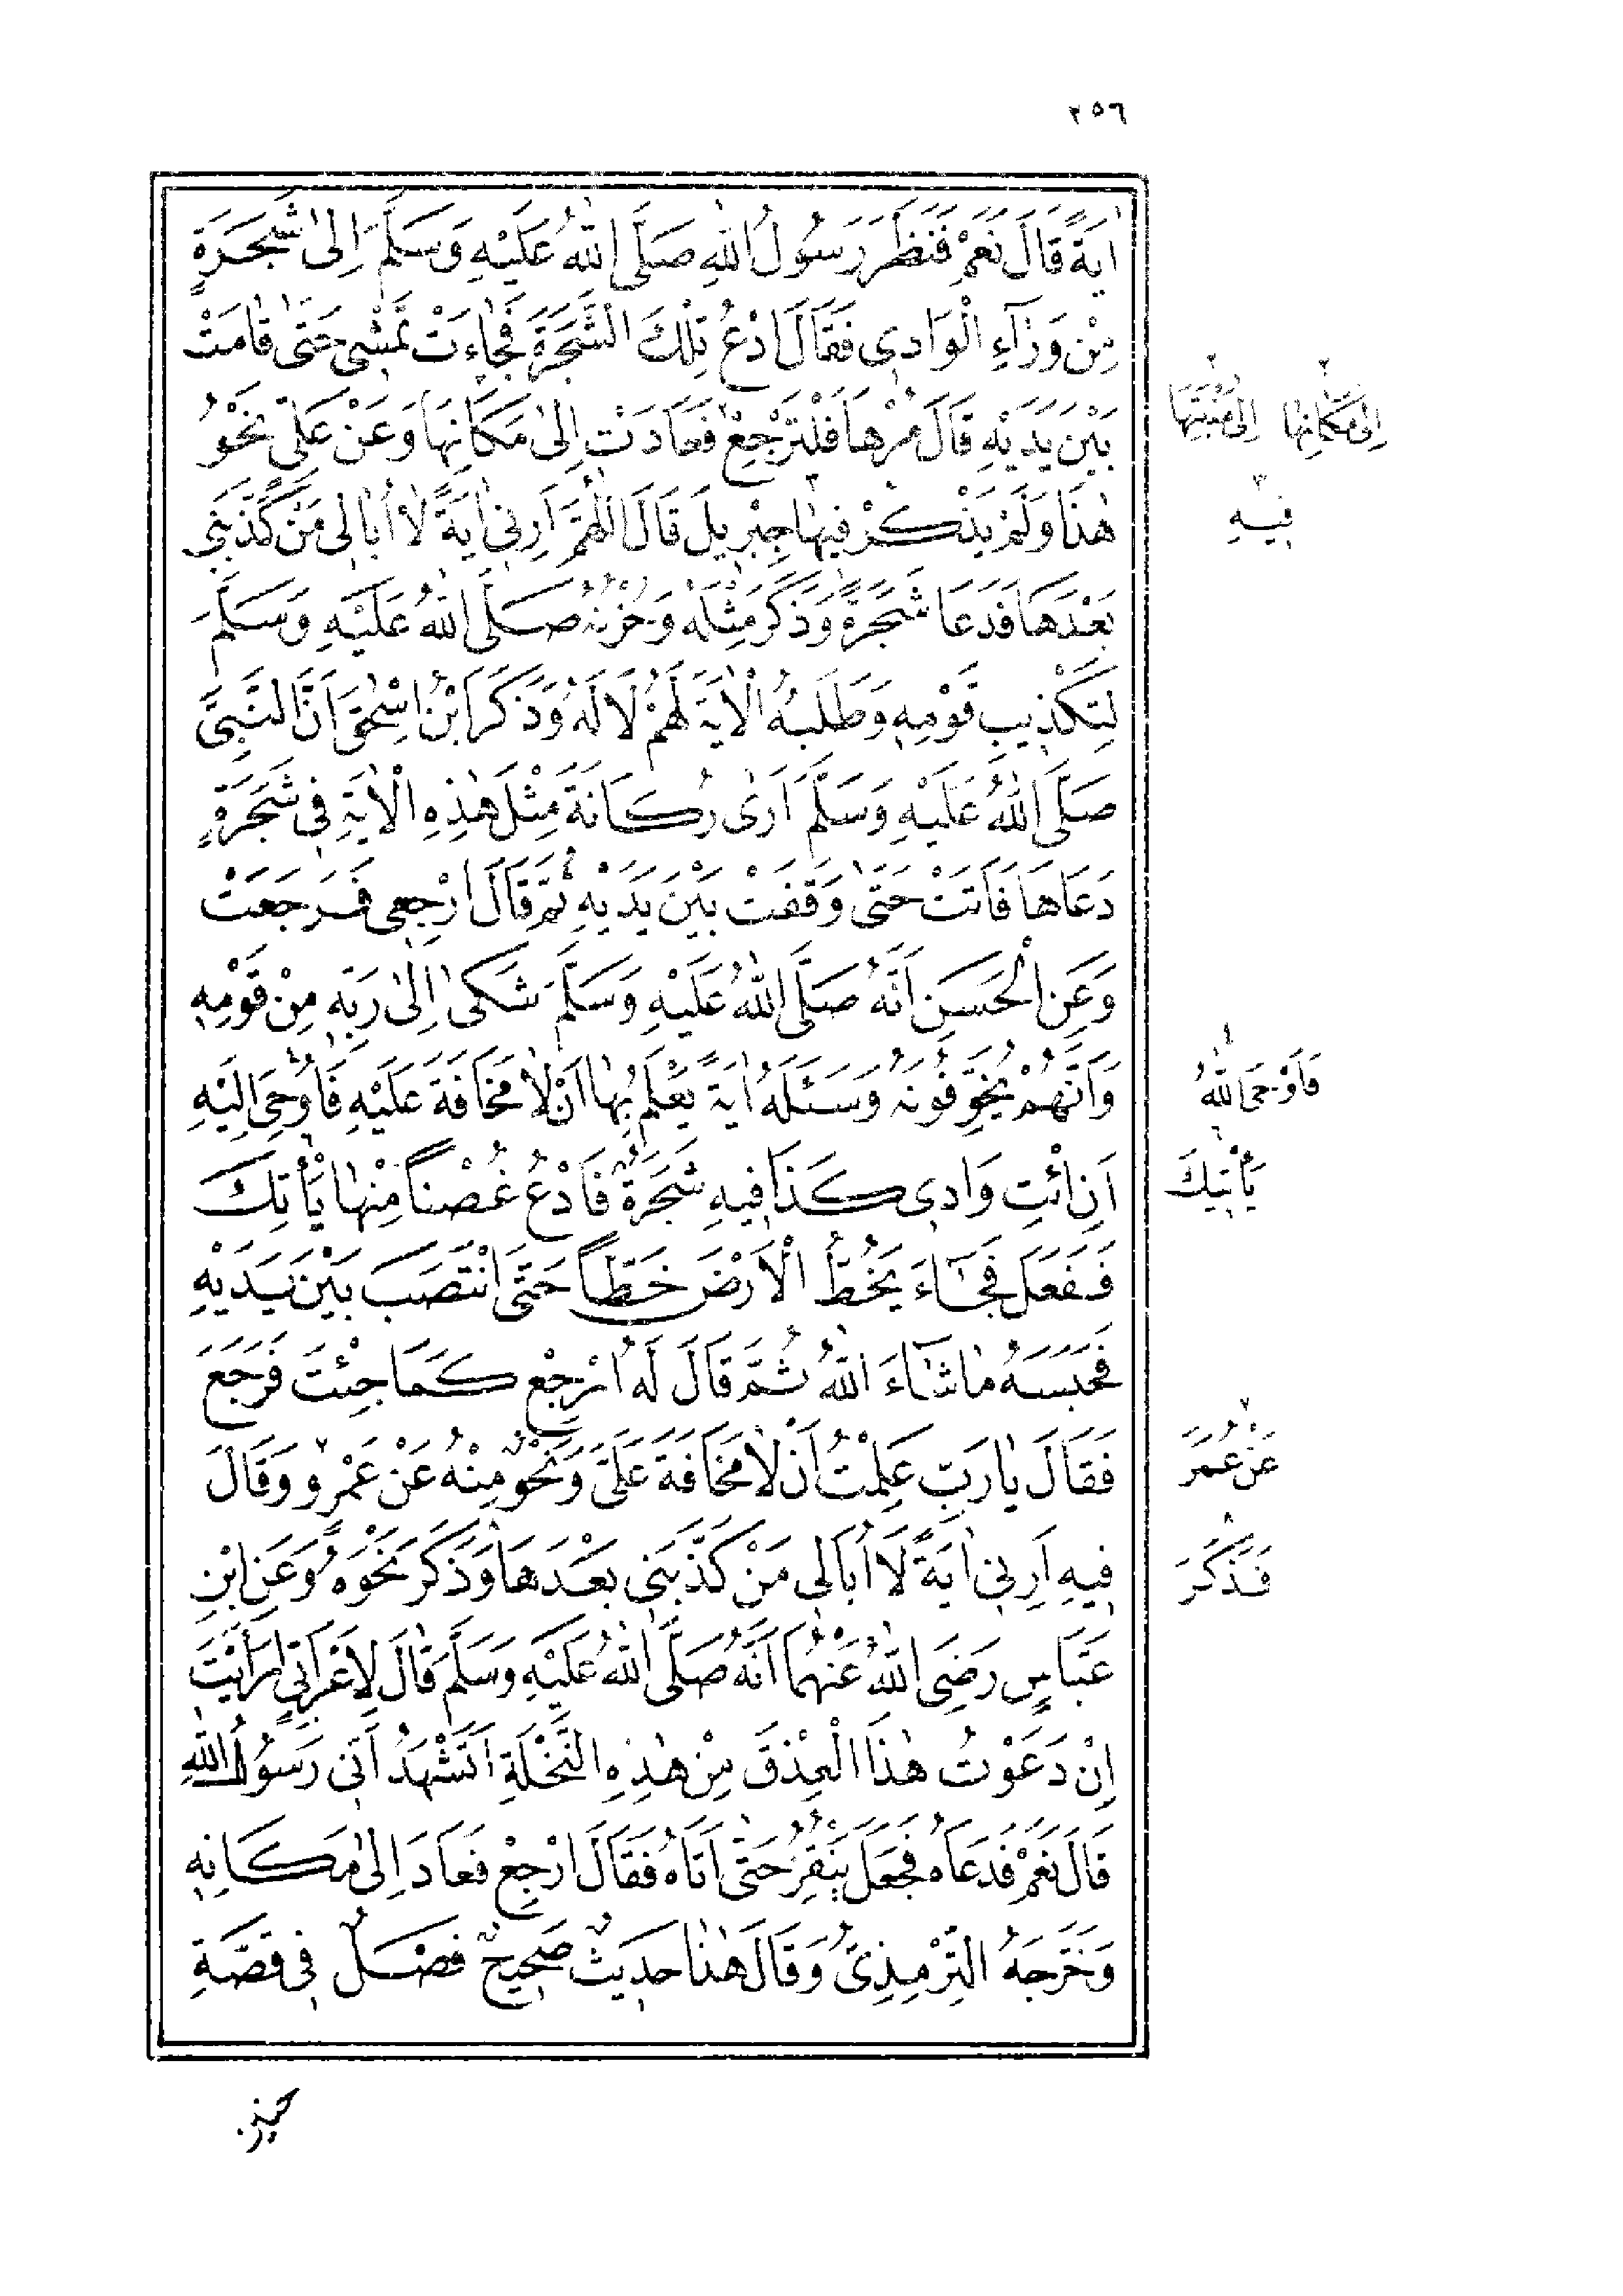 ٢٥٦
اٰيَةً قَالَ نَعَمْ فَنَظَرَ رَسُولُ اللّٰهِ صَلَّى اللّٰهُ عَلَيْهِ وَسَلَّمَ اِلىٰ شَجَرَةٍ
مِنْ وَرَآءِ الْوَادِى فَقَالَ ادْعُ تِلْكَ الشَّجَرَةَ فَجَاءَتْ تَمْشِى حَتّٰى قَامَتْ
بَيْنَ يَدَيْهِ قَالَ مُرْهَا فَلْتَرْجِعْ فَعَادَتْ اِلىٰ مَكَانِهَا وَعَنْ عَلِىٍّ نَحْوُ
هٰذَا وَلَمْ يَذْكُرْ فِيهَا جِبْرِيلَ قَالَ اللّٰهُمَّ اَرِنِى اٰيَةً لَا اُبَالِى مَنْ كَذَّبَنِى
بَعْدَهَا فَدَعَا شَجَرَةً وَذَكَرَ مِثْلَهُ وَحُزْنُهُ صَلَّى اللّٰهُ عَلَيْهِ وَسَلَّمَ
لِتَكْذِيبِ قَوْمِهِ وَطَلَبُهُ الْاٰيَةَ لَهُمْ لَا لَهُ وَذَكَرَ ابْنُ اِسْحٰقَ اَنَّ النَّبِىَّ
صَلَّى اللّٰهُ عَلَيْهِ وَسَلَّمَ اَرٰى رُكَانَةَ مِثْلَ هٰذِهِ الْاٰيَةِ فِى شَجَرَةٍ
دَعَاهَا فَاَتَتْ حَتّٰى وَقَفَتْ بَيْنَ يَدَيْهِ ثُمَّ قَالَ ارْجِعِى فَرَجَعَتْ
وَعَنِ الْحَسَنِ اَنَّهُ صَلَّى اللّٰهُ عَلَيْهِ وَسَلَّمَ شَكىٰ اِلىٰ رَبِّهِ مِنْ قَوْمِهِ
وَاَنَّهُمْ يُخَوِّفُونَهُ وَسَئَلَهُ اٰيَةً يَعْلَمُ بِهَا اَنْ لَا مَخَافَةَ عَلَيْهِ فَاُوحِىَ اِلَيْهِ
اَنِ ائْتِ وَادِى كَذَا فِيهِ شَجَرَةٌ فَادْعُ غُصْنًا مِنْهَا يَأْتِكَ
فَفَعَلَ فَجَآءَ يَخُطُّ الْاَرْضَ خَطًّا حَتَّى انْتَصَبَ بَيْنَ يَدَيْهِ
فَحَبَسَهُ مَا شَآءَ اللّٰهُ ثُمَّ قَالَ لَهُ ارْجِعْ كَمَا جِئْتَ فَرَجَعَ
فَقَالَ يَا رَبِّ عَلِمْتُ اَنْ لَا مَخَافَةَ عَلَىَّ وَنَحْوٌ مِنْهُ عَنْ عَمْرٍو وَقَالَ
فِيهِ اَرِنِى اٰيَةً لَا اُبَالِى مَنْ كَذَّبَنِى بَعْدَهَا وَذَكَرَ نَحْوَهُ وَعَنِ ابْنِ
عَبَّاسٍ رَضِىَ اللّٰهُ عَنْهُمَا اَنَّهُ صَلَّى اللّٰهُ عَلَيْهِ وَسَلَّمَ قَالَ لِاَعْرَابِىٍّ اَرَاَيْتَ
اِنْ دَعَوْتُ هٰذَا الْعِذْقَ مِنْ هٰذِهِ النَّخْلَةِ اَتَشْهَدُ اَنِّى رَسُولُ اللّٰهِ
قَالَ نَعَمْ فَدَعَاهُ فَجَعَلَ يَنْقُزُ حَتّٰى اَتَاهُ فَقَالَ ارْجِعْ فَعَادَ اِلىٰ مَكَانِهِ
وَخَرَّجَهُ التِّرْمِذِىُّ وَقَالَ هٰذَا حَدِيثٌ صَحِيحٌ فَصْلٌ فِى قِصَّةِ
٢ اِلىٰ مَكَانِهَا ٢ اِلىٰ مَنْبَتِهَا
٣ فِيهِ
٤ فَاَوْحَى اللّٰهُ
٦ يَأْتِيكَ
٧ عَنْ عُمَرَ
٨ فَذَكَرَ